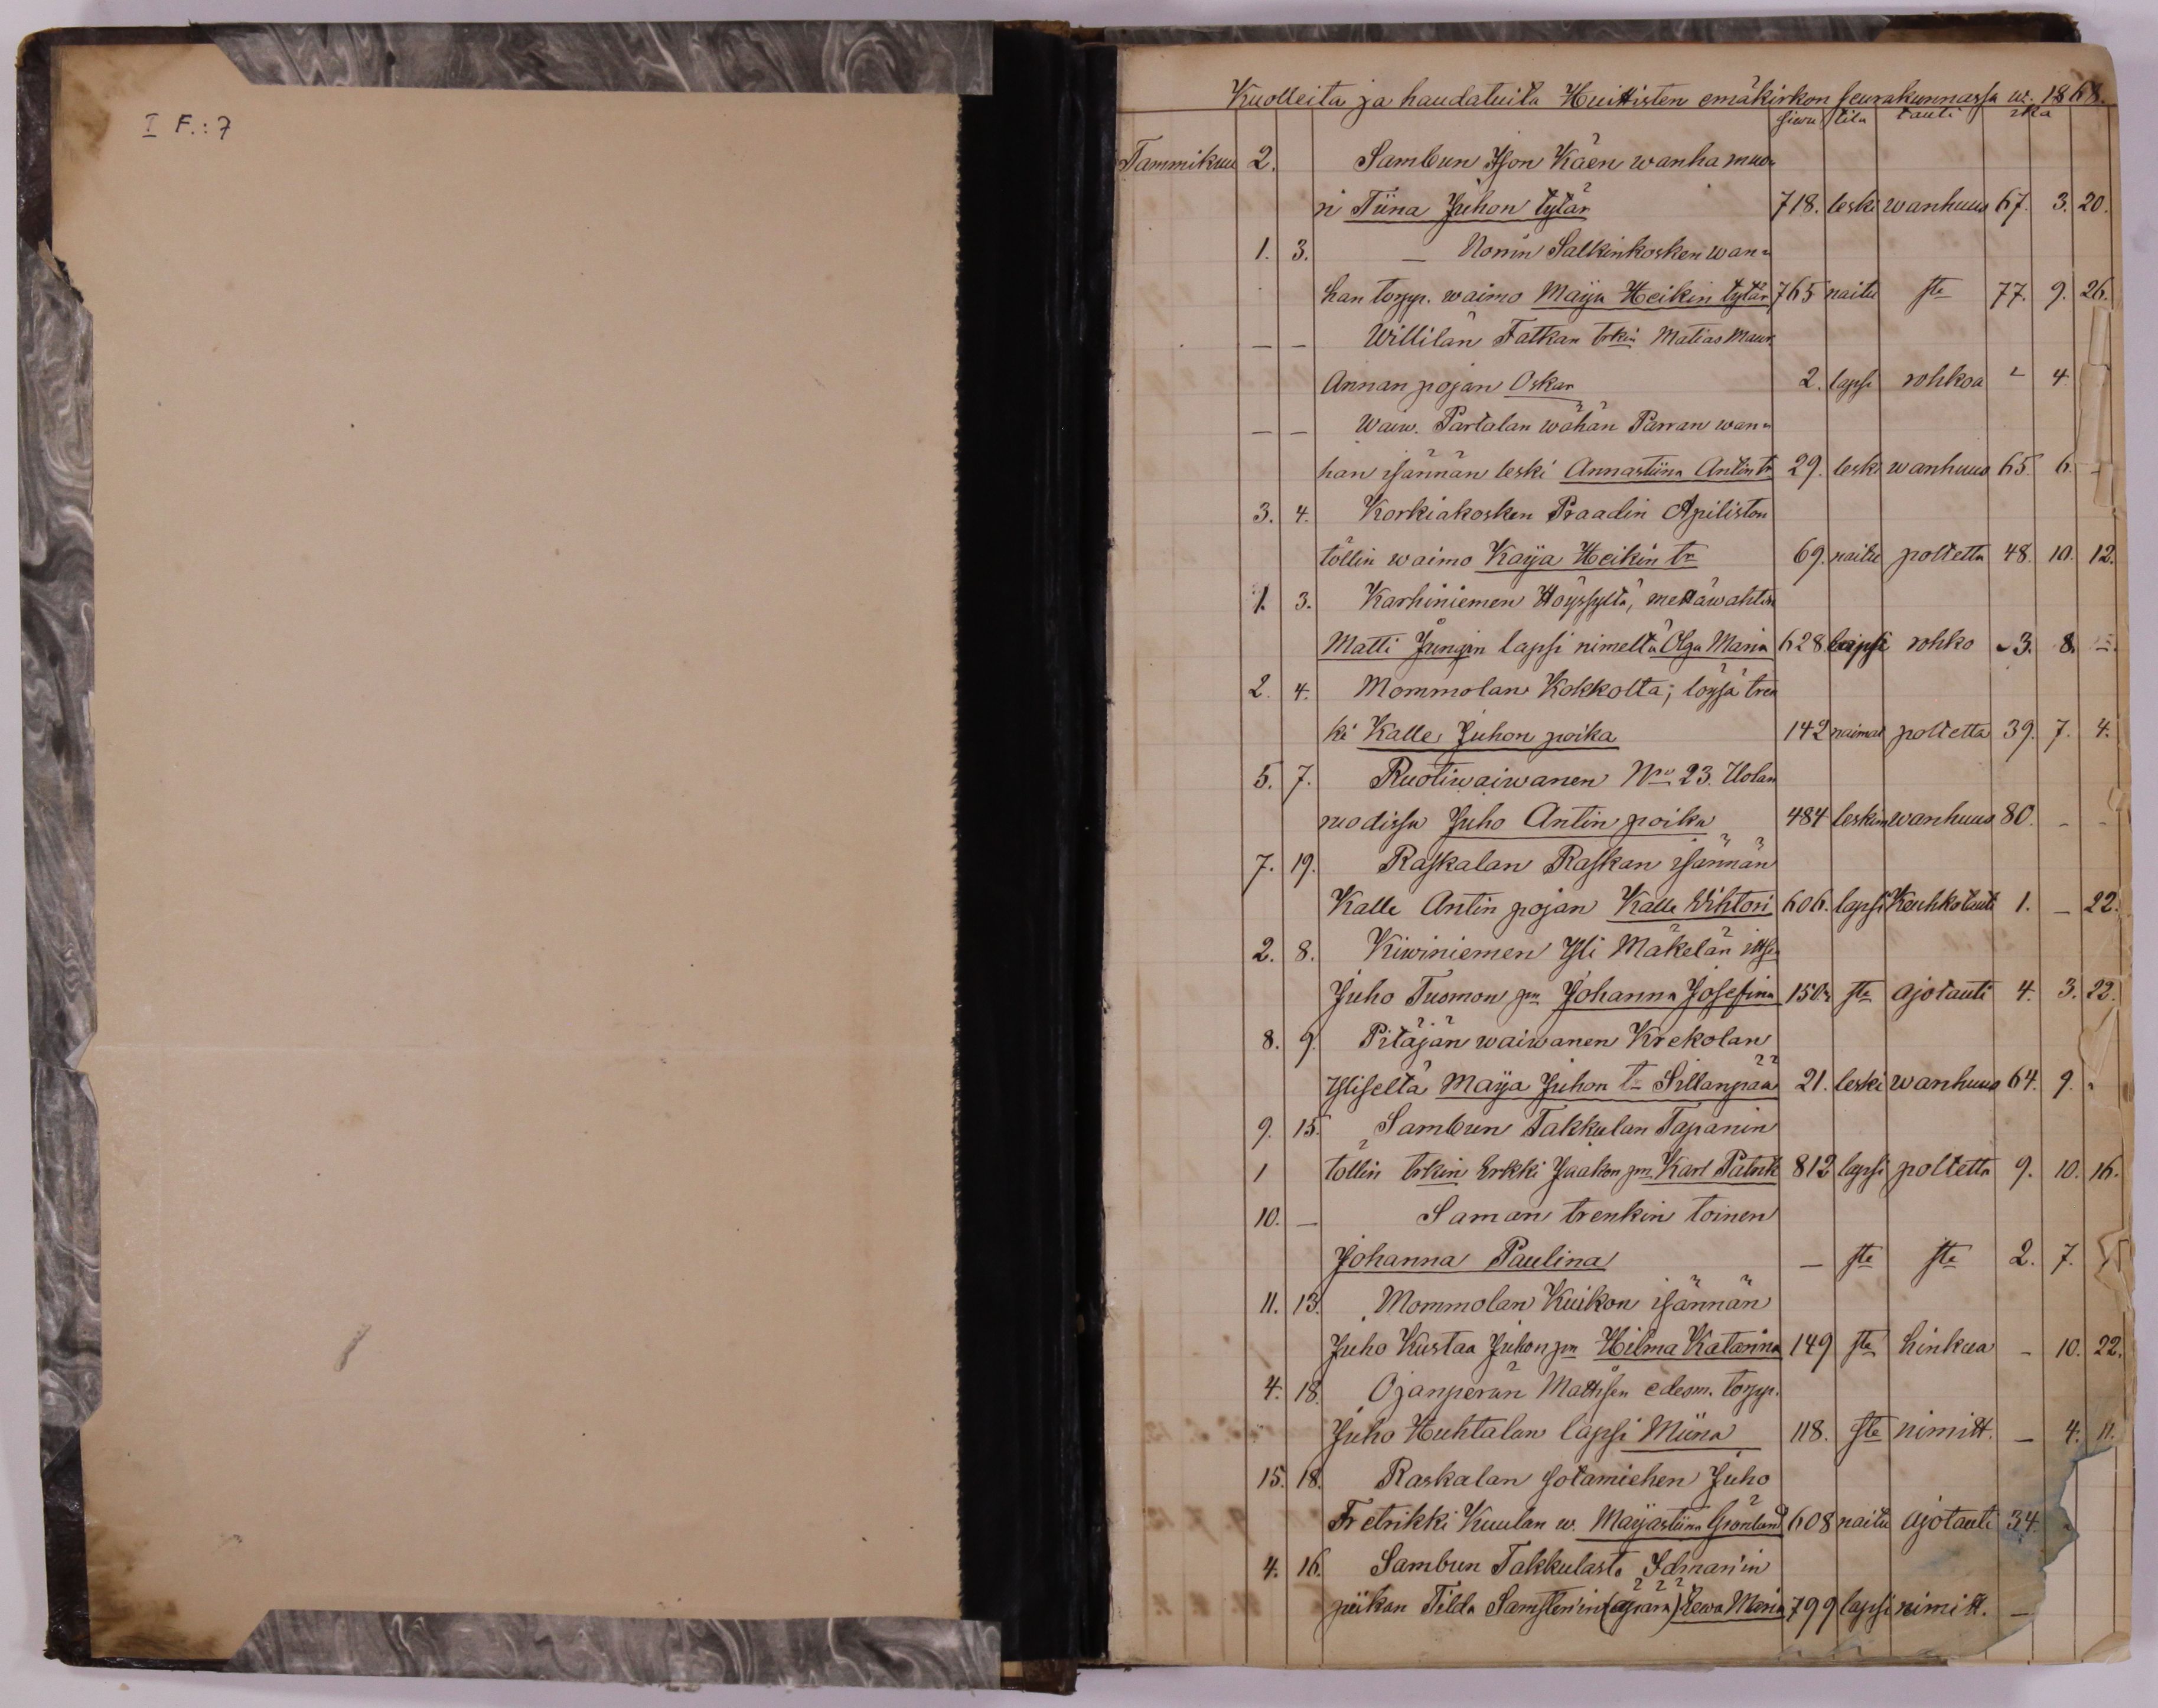 I F.: 7
Kuolleita ja haudatuita Huittisten emäkirkon seurakunnassa w. 1868.
siwu tila tauti ikä
Tammikuu 2. Sambun Ison Käen wanha muo-
ri Tiina Juhon tytär 718. leski wanhuus 67. 3. 20.
1. 3. — Nonin Sallinkosken wan-
han torpp. waimo Maija Heikin tytär 765 naitu sta 77. 9. 26.
— — Willilän Fatkan trkin Matias
Annan pojan Oskar 2. lapsi rohkoa - 4.
— — Waiw. Partalan wähän Parran wan-
han isännän leski Annastiina Antin tr 29. leski wanhuus 65 6. -
3. 4. Korkiakosken Praadin Apiliston
töllin waimo Kaija Heikin tr 69. naitu poltetta 48. 10. 12.
1. 3. Karhiniemen Höyssyltä, mettäwahtin
Matti Ljungin lapsi nimeltä Olga Maria 628 lapsi rohko 3. 8. -
2. 4. Mommolan Kokkolta; löysä tren
ki Kalle Juhon poika 142 naimat poltetta 39. 7. 4.
5. 7. Ruotiwaiwanen Nro 23. Uolan
ruodissa Juho Antin poika 484 leskim wanhuus 80. - -
7. 19. Raskalan Raskan isännän
Kalle Antin pojan Kalle Wihtori 606. lapsi Keuhkotauti 1. — 22.
2. 8. Kiwiniemen Yli Mäkelän
Juho Tuomon pn Johanna Josefina 150 sta ajotauti 4. 3. 22.
8. 9. Pitäjän waiwanen Krekolan
Yliseltä Maija Juhon t. Sillanpää 21. leski wanhuus 64. 9. -
9. 15. Sambun Takkulan Tapanin
1 töllin trkin Erkki Jaakon pn Karl Patrik 812 lapsi poltetta 9. 10. 16.
10. — Saman trenkin toinen
Johanna Paulina — sta sta 2. 7.
11. 13. Mommolan Kuikon isännän
Juho Kustaa Juhon pn Hilma Katarina 149 sta hinkua - 10. 22.
4. 18. Ojanperän Mattsen edesm. torpp.
Juho Huhtalan lapsi Miina 118. sta nimitt. — 4. 11.
15. 18. Raskalan sotamiehen Juho
Fretrikki Kuulan w. Maijastiina Grönlund 608 naitu ajotauti 34.
4. 16. Sambun Takkulasta Idman'in
piikan Tilda Samsten'in (äpärä) Eewa Maria 799 lapsi nimitt. —